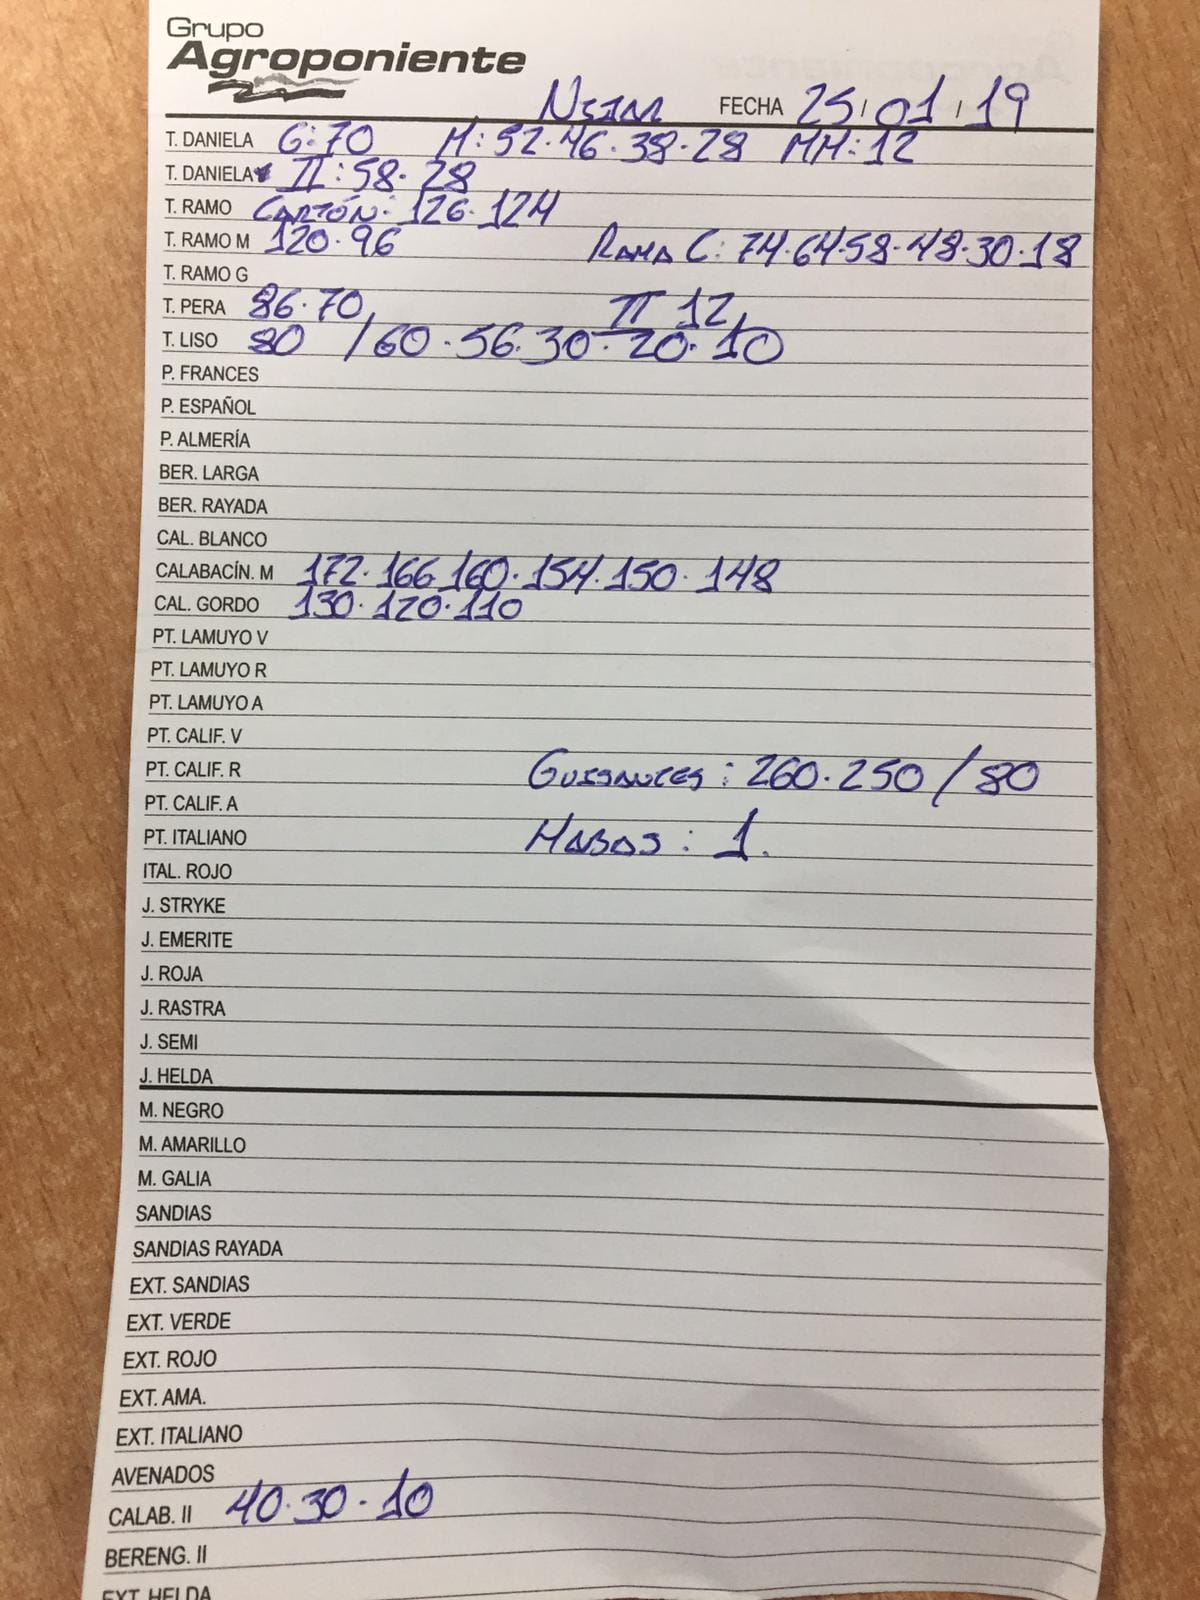 Grupo
Agroponiente
NÍJAR FECHA 25/01/19
T. DANIELA G:70 M:52.46.38.28 MM:12
T. DANIELA II:58.28
T. RAMO CARTÓN: 126.124
T. RAMO M 120.96 RAMA C: 74.64.58.48.30.18
T. RAMO G
T. PERA 86.70 II 12
T. LISO 80 /60.56.30.20.10
P. FRANCES
P. ESPAÑOL
P. ALMERÍA
BER. LARGA
BER. RAYADA
CAL. BLANCO
CALABACÍN. M 172.166 160.154.150.148
CAL. GORDO 130.120.110
PT. LAMUYO V
PT. LAMUYO R
PT. LAMUYO A
PT. CALIF. V
PT. CALIF. R GUISANTES: 260.250/80
PT. CALIF. A
PT. ITALIANO HABAS: 1.
ITAL. ROJO
J. STRYKE
J. EMERITE
J. ROJA
J. RASTRA
J. SEMI
J. HELDA
M. NEGRO
M. AMARILLO
M. GALIA
SANDIAS
SANDIAS RAYADA
EXT. SANDIAS
EXT. VERDE
EXT. ROJO
EXT. AMA.
EXT. ITALIANO
AVENADOS
CALAB. II 40.30.10
BERENG. II
EXT. HELDA